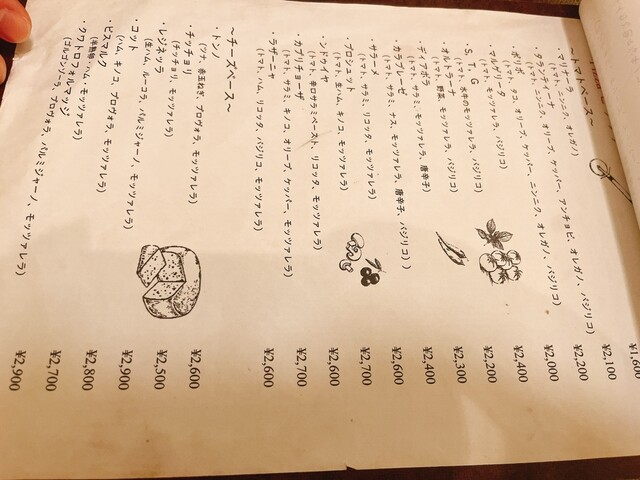 ～トマトベース～
・マリナーラ ¥1,600
(トマト、ニンニク、オレガノ)
・タランティーナ ¥2,100
(トマト、ニンニク、オリーブ、ケッパー、アンチョビ、オレガノ、バジリコ)
・ポリポ ¥2,200
(トマト、タコ、オリーブ、ケッパー、ニンニク、オレガノ、バジリコ)
・マルゲリータ ¥2,000
(トマト、モッツァレラ、バジリコ)
・S．T．G ¥2,400
(トマト、水牛のモッツァレラ、バジリコ)
・オルトラーナ ¥2,200
(トマト、野菜、モッツァレラ、バジリコ)
・ディアボラ ¥2,300
(トマト、サラミ、モッツァレラ、唐辛子)
・カラブレーゼ ¥2,400
(トマト、サラミ、ナス、モッツァレラ、唐辛子、バジリコ)
・サラーメ ¥2,600
(トマト、サラミ、リコッタ、モッツァレラ)
・プロシュット ¥2,700
(トマト、生ハム、キノコ、モッツァレラ)
・ンドゥイヤ ¥2,600
(トマト、辛口サラミペースト、リコッタ、モッツァレラ)
・カプリチョーザ ¥2,700
(トマト、サラミ、キノコ、オリーブ、ケッパー、モッツァレラ)
・ラザーニャ ¥2,600
(トマト、ハム、リコッタ、バジリコ、モッツァレラ)
～チーズベース～
・トンノ ¥2,600
(ツナ、赤玉ねぎ、プロヴォラ、モッツァレラ)
・チッチョリ ¥2,500
(チッチョリ、モッツァレラ)
・レジネッラ ¥2,900
(生ハム、ルーコラ、パルミジャーノ、モッツァレラ)
・コット ¥2,800
(ハム、キノコ、プロヴォラ、モッツァレラ)
・ビスマルク ¥2,700
(半熟卵、ハム、モッツァレラ)
・クワトロフォルマッジ ¥2,900
(ゴルゴンゾーラ、プロヴォラ、パルミジャーノ、モッツァレラ)